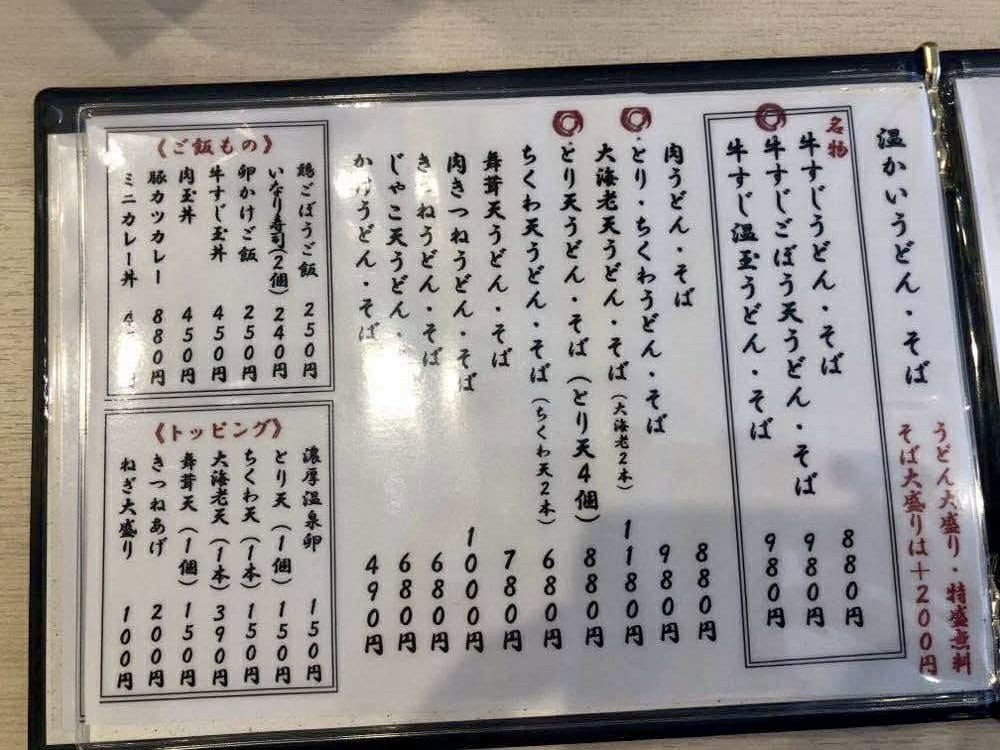 温かいうどん・そば
うどん大盛り・特盛無料
そば大盛りは＋200円
名物
牛すじうどん・そば 880円
牛すじごぼう天うどん・そば 980円
牛すじ温玉うどん・そば 980円
肉うどん・そば 880円
とり・ちくわうどん・そば 980円
大海老天うどん・そば（大海老2本） 1180円
とり天うどん・そば（とり天4個） 880円
ちくわ天うどん・そば（ちくわ天2本） 680円
舞茸天うどん・そば 780円
肉きつねうどん・そば 1000円
きつねうどん・そば 680円
じゃこ天うどん・ 680円
かけうどん・そば 490円
《ご飯もの》
鶏ごぼうご飯 250円
いなり寿司（2個） 240円
卵かけご飯 250円
牛すじ玉丼 450円
肉玉丼 450円
豚カツカレー 880円
ミニカレー丼 円
《トッピング》
濃厚温泉卵 150円
とり天（1個） 150円
ちくわ天（1本） 150円
大海老天（1本） 390円
舞茸天（1個） 150円
きつねあげ 200円
ねぎ大盛り 100円